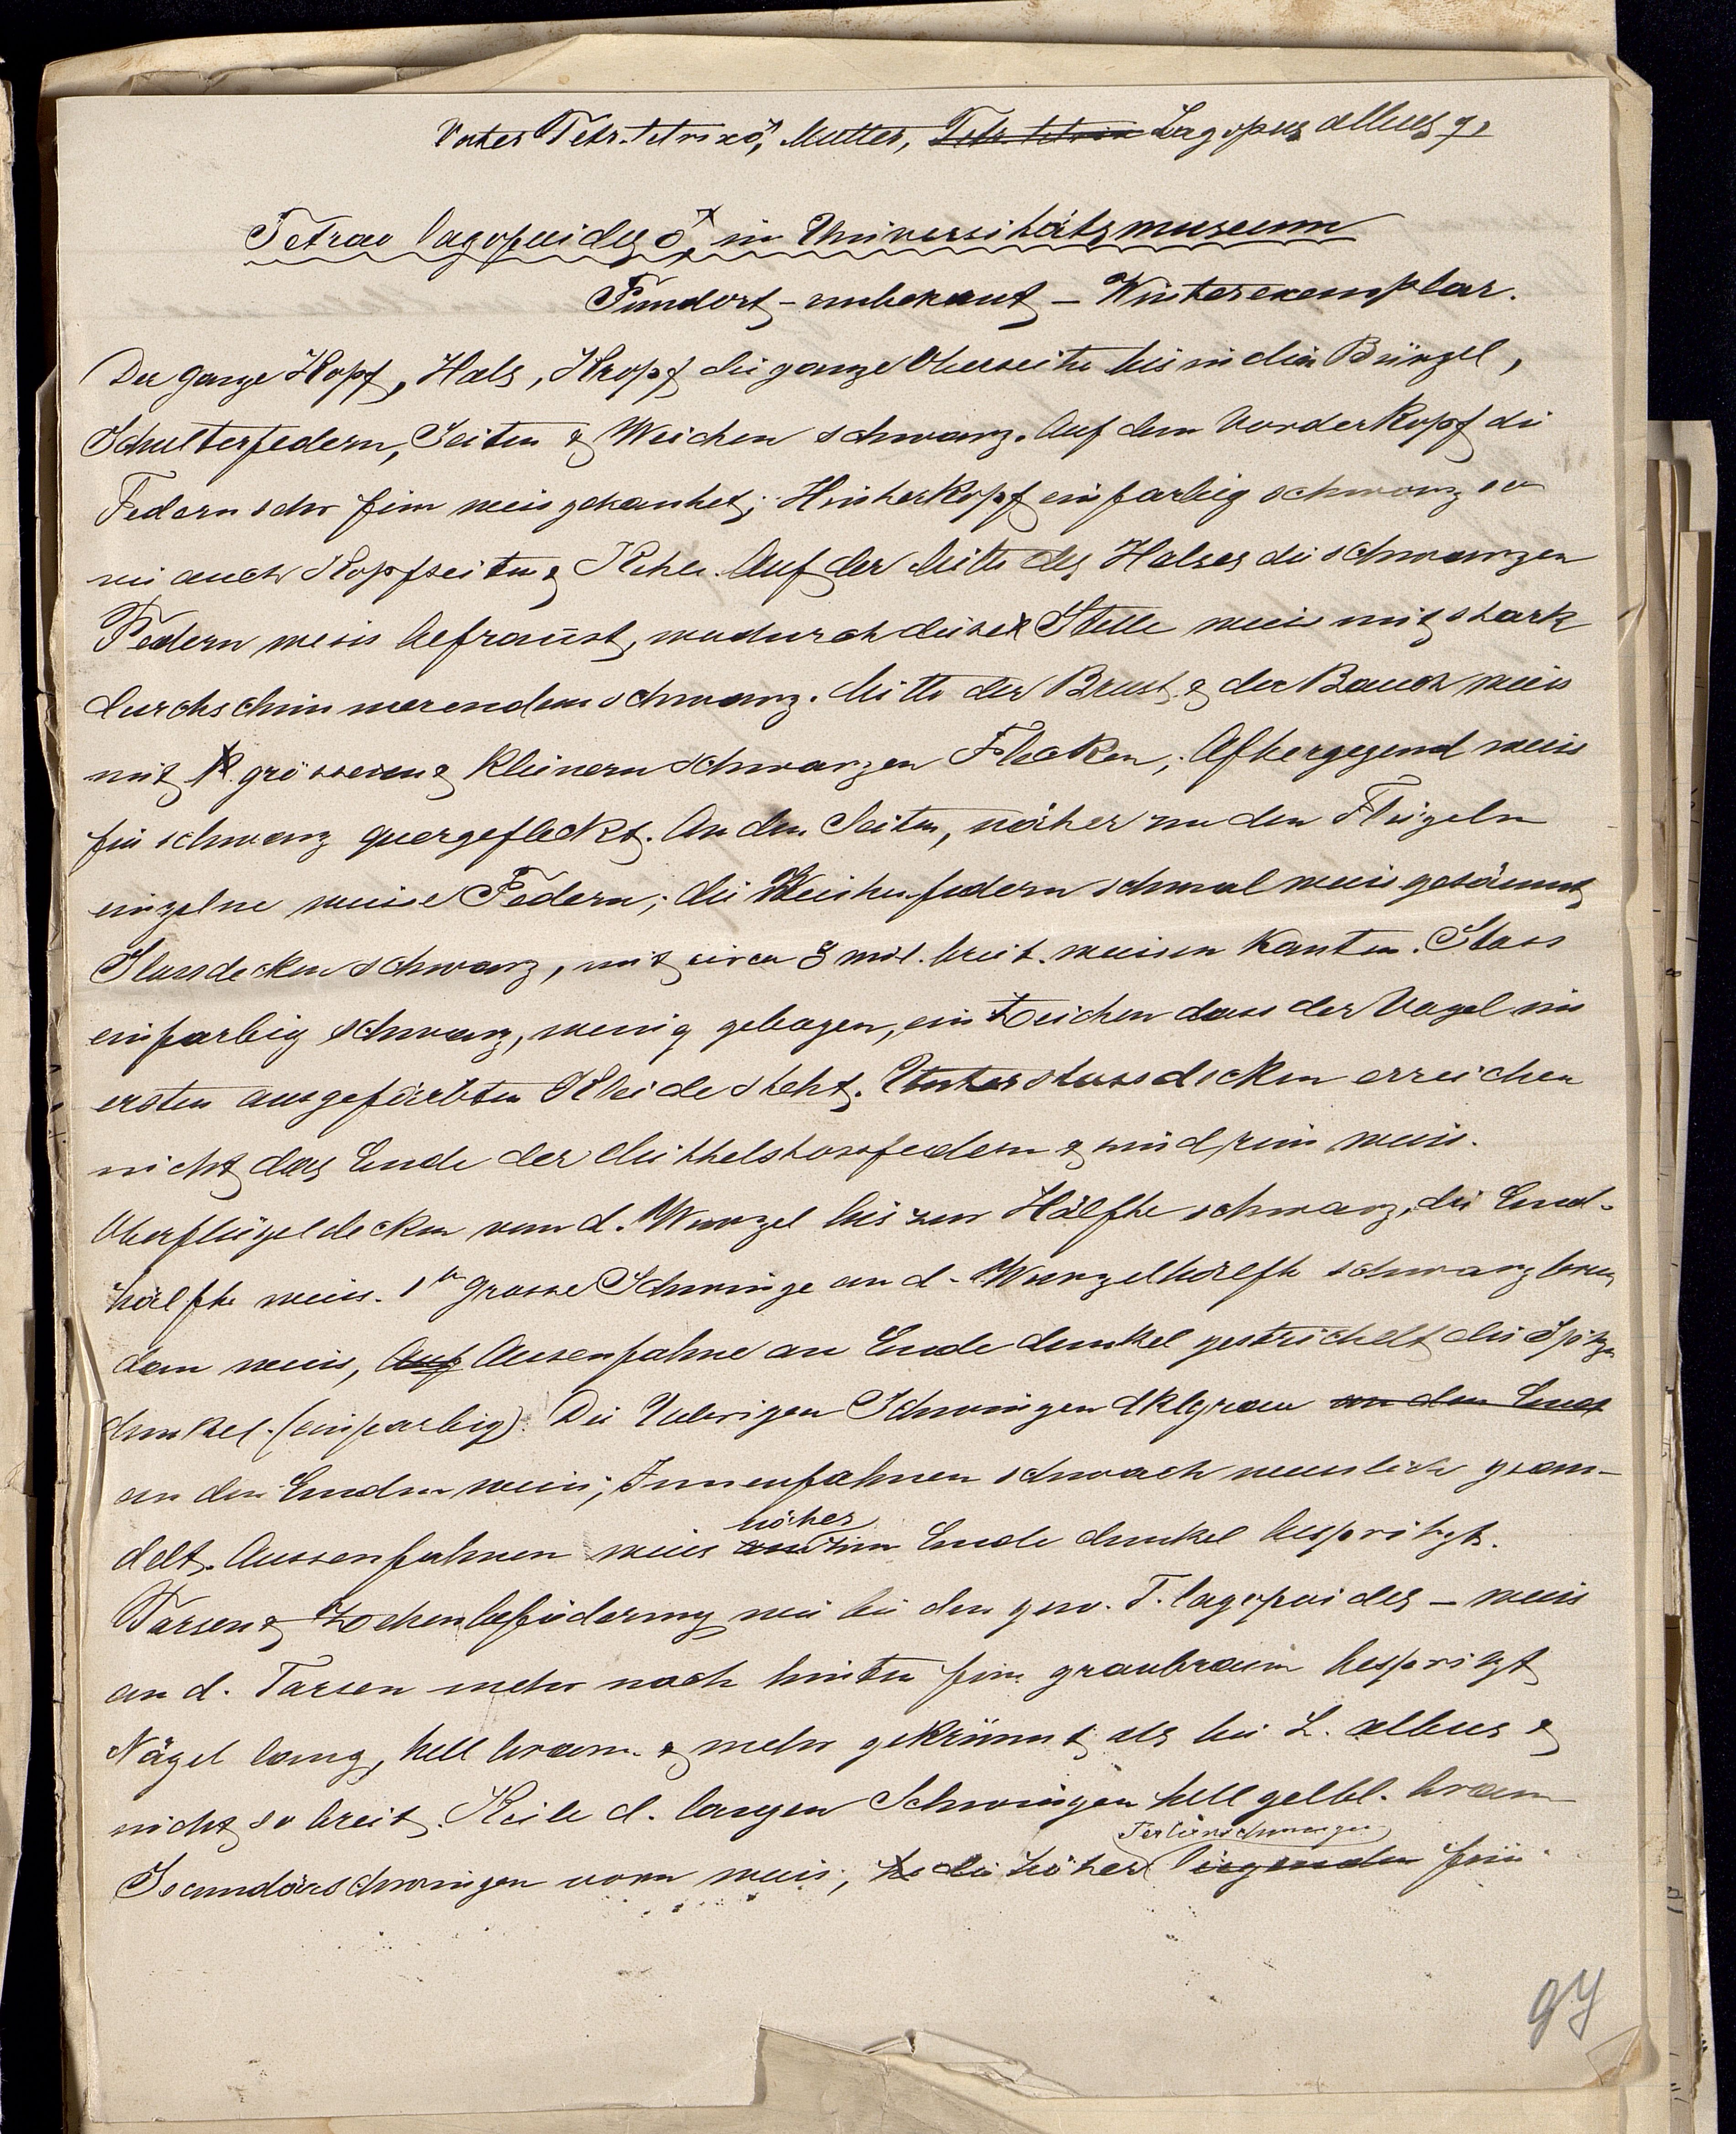 Vater Tetr. tetrix ♂, Mutter, Tetr. tetrix Lagopus albus ♀.
Tetrao lagopoides ♂, im Universitätsmuseum
Fundort – unbekant – Winterexemplar.
Der ganze Kopf, Hals, Kropf die ganze Oberseite bis in den Bürzel,
Schulterfedern, Seiten & Weichen schwarz. Auf dem Vorderkopf die
Federn sehr fein weis gekantet; Hinterkopf einfarbig schwarz so
wie auch Kopfseiten & Kehle. Auf der Mitte des Halses die schwarzen
Federn weis befranst, wodurch diese Stelle weis mit stark
durchschimmerendem schwarz. Mitte der Brust & der Bauch weis
mit grösseren & kleinern schwarzen Flecken; Aftergegend weis
fein schwarz quergefleckt. An den Seiten, näher zu den Flügeln
einzelne weisse Federn; die Weichenfedern schmal weis gesäumt
Stossdecken schwarz, mit circa 3 mil. breit. weissen Kanten. Stoss
einfarbig schwarz, wenig gebogen, ein Zeichen dass der Vogel im
ersten ausgefärbten Kleide steht. Unterstossdecken erreichen
nicht das Ende der Mittelstossfedern & sind rein weis.
Oberflügeldecken von d. Wurzel bis zur Hälfte schwarz, die End-
hälfte weis. 1te grosse Schwinge an d. Wurzelhälfte schwarzbraun
dan weis, Auf Ausenfahne an Ende dunkel gestrichelt die Spitze
dunkel. (einfarbig). Die Uebrigen Schwingen dklgrau an den Enden
an den Enden weis; Innenfahnen schwach weislich geran-
delt. Aussenfahnen weis höher zum Ende dunkel bespritzt.
Tarsen & Zehenbefiederung wie bei den gew. T. lagopoides – weis
an d. Tarsen mehr nach hinten fein graubraun bespritzt
Nägel lang, hell braun & mehr gekrümt als bei L. albus &
nicht so breit. Keile d. langen Schwingen hell gelbl. braun
Tertiärschwingen
Secundärschwingen vorn weis; die höher liegenden fein
97